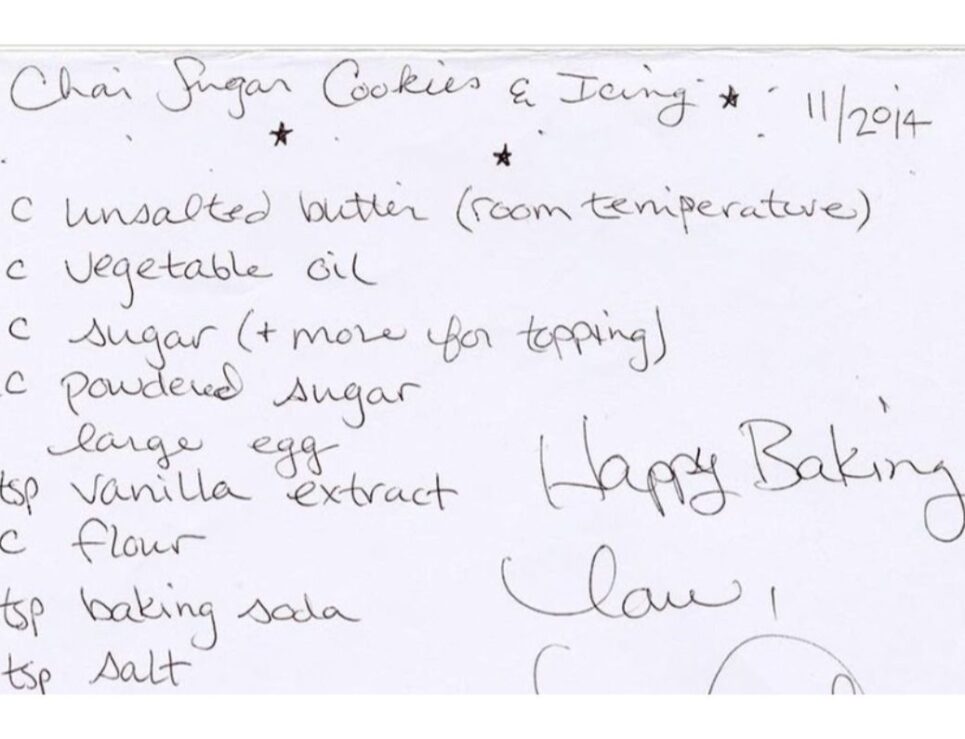 Chai Sugar Cookies & Icing ★ 11/2014
★ ★
c unsalted butter (room temperature)
c vegetable oil
c sugar (+ more for topping)
c powdered sugar
large egg
tsp vanilla extract
c flour
tsp baking soda
tsp salt
Happy Baking